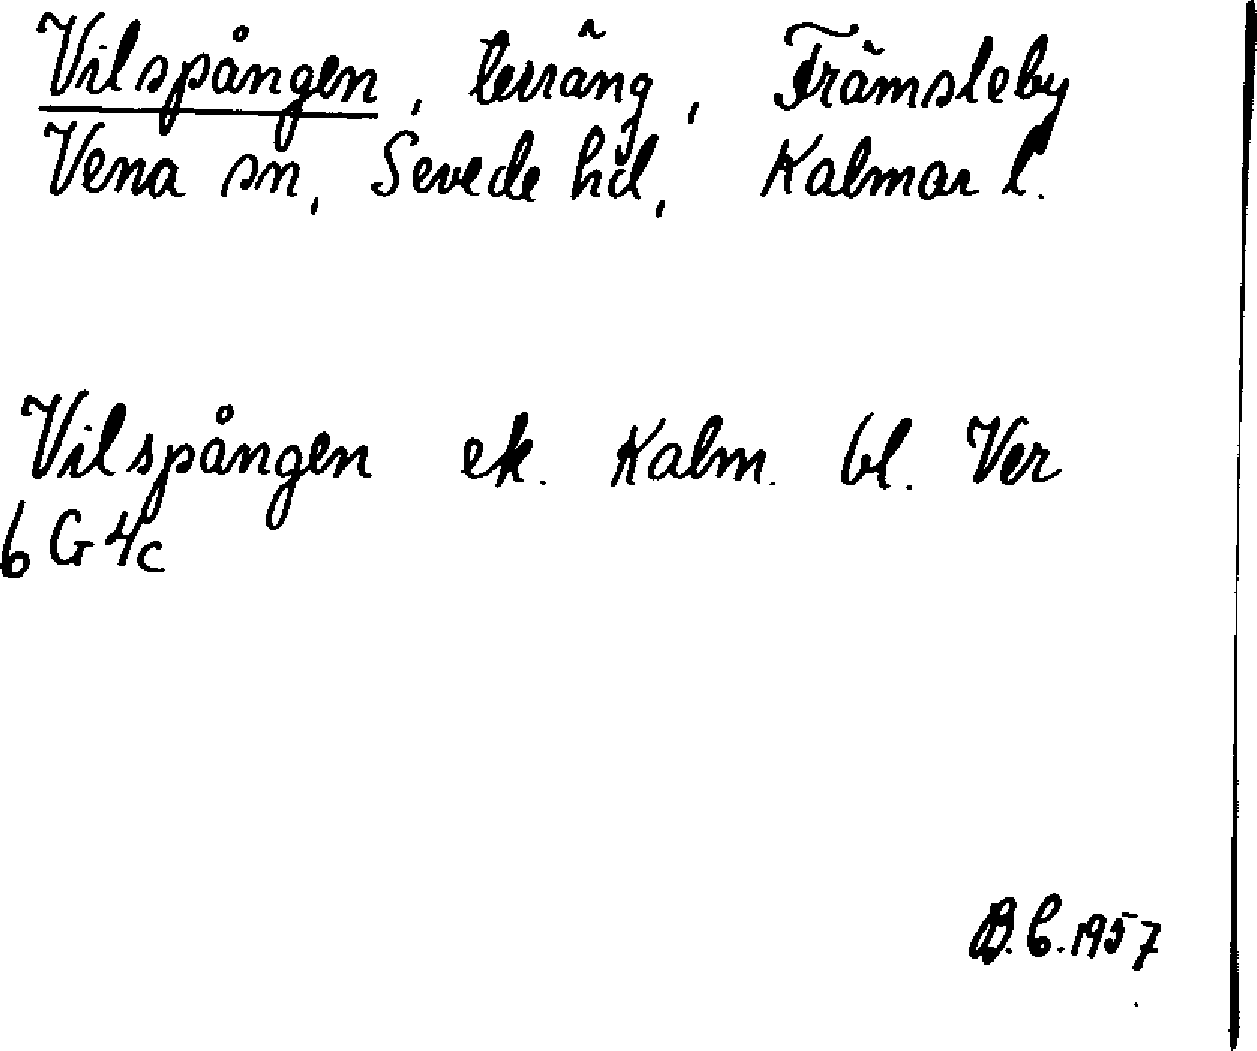 Vilspången, terräng, Främsteby
Vena sn, Sevede hd, Kalmar l.
Vilspången ek. Kalm. bl. Ver
6 G 4c
B.C. 1957